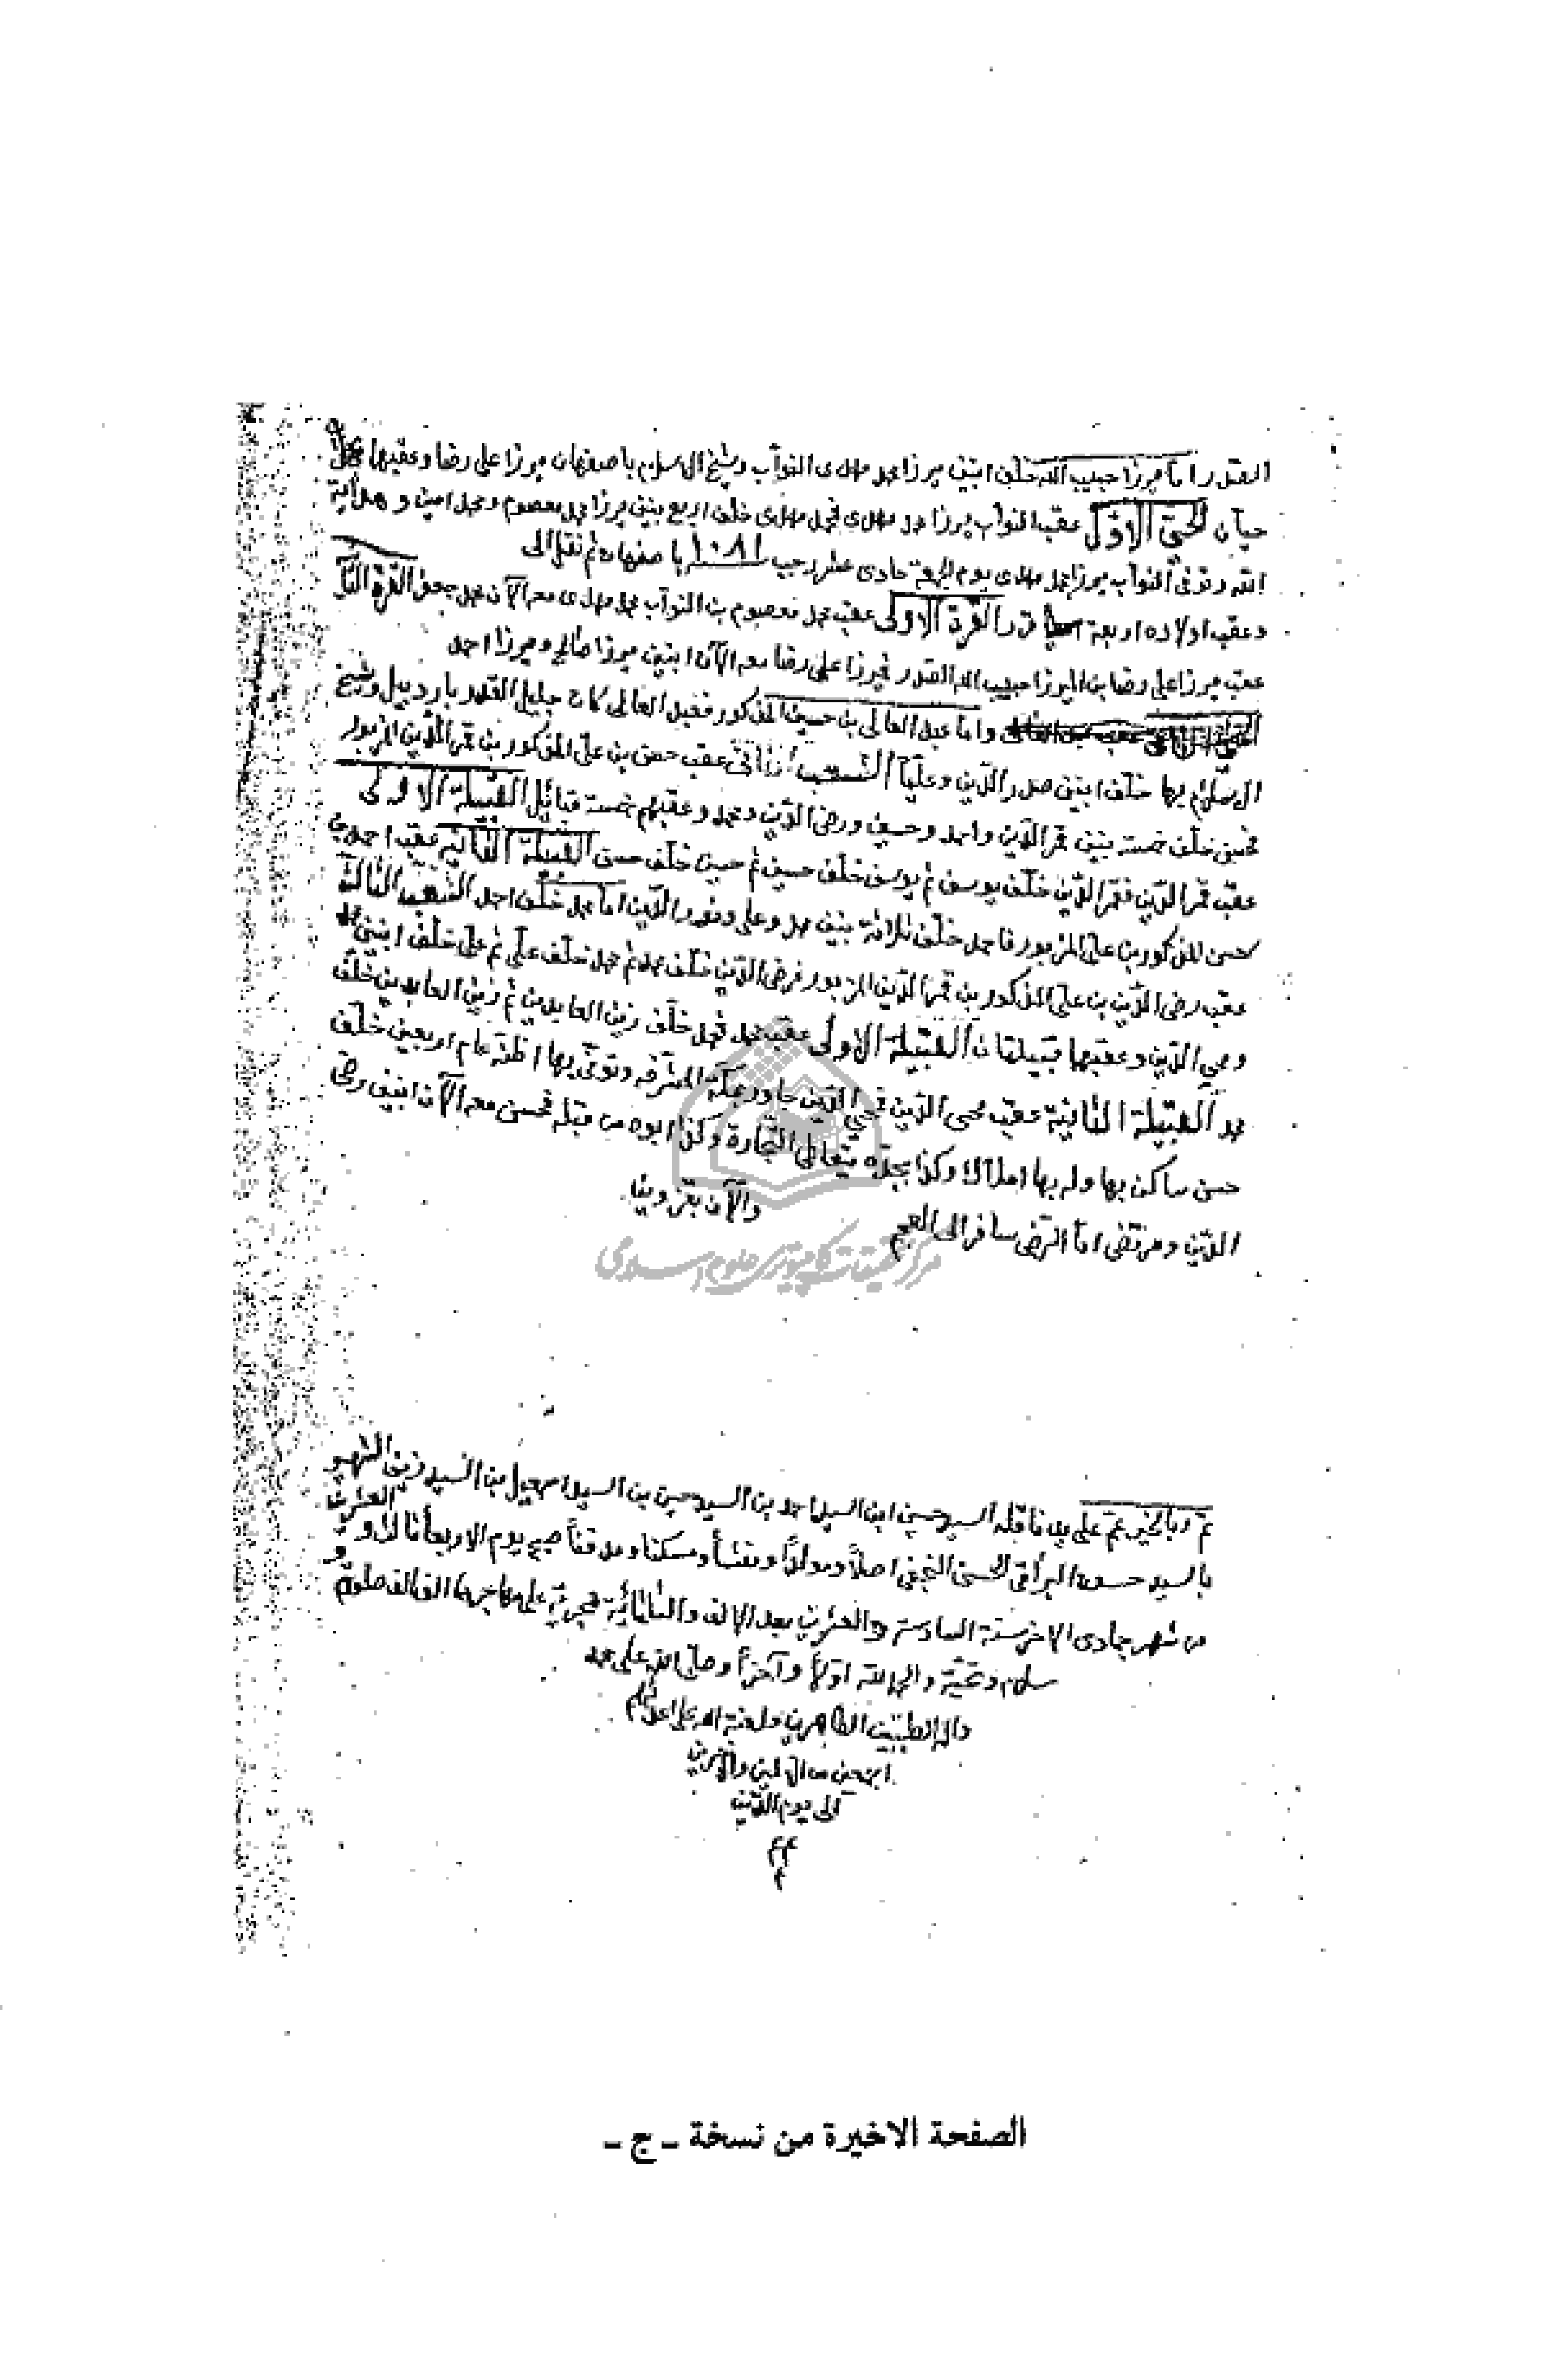 الصدر اما ميرزا حبيب الله خلف ابنين ميرزا محمد مهدى النواب وشيخ الاسلام باصفهان ميرزا على رضا وعقبهما
حيان الحى الاول عقب النواب ميرزا محمد مهدى فمحمد مهدى خلف اربع بنين ميرزا محمد معصوم ومحمد امين وهداية
الله وتوفى النواب ميرزا محمد مهدى يوم الجمعة حادى عشر رجب ١٠٨١ باصفهان ثم نقل الى
وعقب اولاده اربعة الغرة الاولى عقب محمد معصوم بن النواب محمد مهدى معه الآن محمد جعفر الغرة
عقب ميرزا على رضا بن الميرزا حبيب الله الصدر فميرزا على رضا معه الآن ابنين ميرزا صالح وميرزا احمد
واما عبد العالى بن حسين المذكور فعبد العالى كان جليل القدر باردبيل وشيخ
الاسلام بها خلف ابنين صدر الدين وعليا الشعب الثانى عقب حسن بن على المذكور بن قمر الدين المزبور
فحسن خلف خمسة بنين قمر الدين واحمد وحسين ورضى الدين ومحمد وعقبهم خمسة قبائل القبيلة الاولى
عقب قمر الدين فقمر الدين خلف يوسف ثم يوسف خلف حسين ثم حسين خلف حسن القبيلة الثانية عقب احمد بن
حسن المذكور بن على المزبور فاحمد خلف ثلاثة بنين محمد وعلى ونور الدين اما محمد خلف احمد الشعب الثالث
عقب رضى الدين بن على المذكور بن قمر الدين المزبور فرضى الدين خلف محمد ثم محمد خلف على ثم على خلف ابنين محمد
ومحى الدين وعقبهما قبيلتان القبيلة الاولى عقب محمد فمحمد خلف زين العابدين ثم زين العابدين خلف
محمد القبيلة الثانية عقب محيى الدين فمحيى الدين جاور بمكة المشرفة وتوفى بها اظنه عام اربعين خلف
حسن ساكن بها وله بها املاك وكذا بجدة يتعالى التجارة وكذا ابوه من قبله فحسن معه الآن ابنين رضى
الدين ومرتضى اما الرضى سافر الى العجم والآن بقزوين
مركز تحقيقات كامپيوترى علوم اسلامى
تم وبالخير عم على يد ناقله السيد حسين ابن السيد احمد بن السيد حسين بن السيد اسمعيل بن السيد زينى الشهير
بالسيد حسون البراقى الحسنى النجفى اصلا ومولدا ومنشأ ومسكنا ومدفنا صبح يوم الاربعاء الثالث والعشرين
من شهر جمادى الاخر سنة السادسة والعشرين بعد الالف والثلثمائة هجرية على مهاجرها الف الف صلوة و
سلام وتحية والحمد لله اولا وآخرا وصلى الله على محمد
وآله الطيبين الطاهرين ولعنة الله على اعدائهم
اجمعين من الاولين والآخرين
الى يوم الدين
الصفحة الاخيرة من نسخة ـ ج ـ